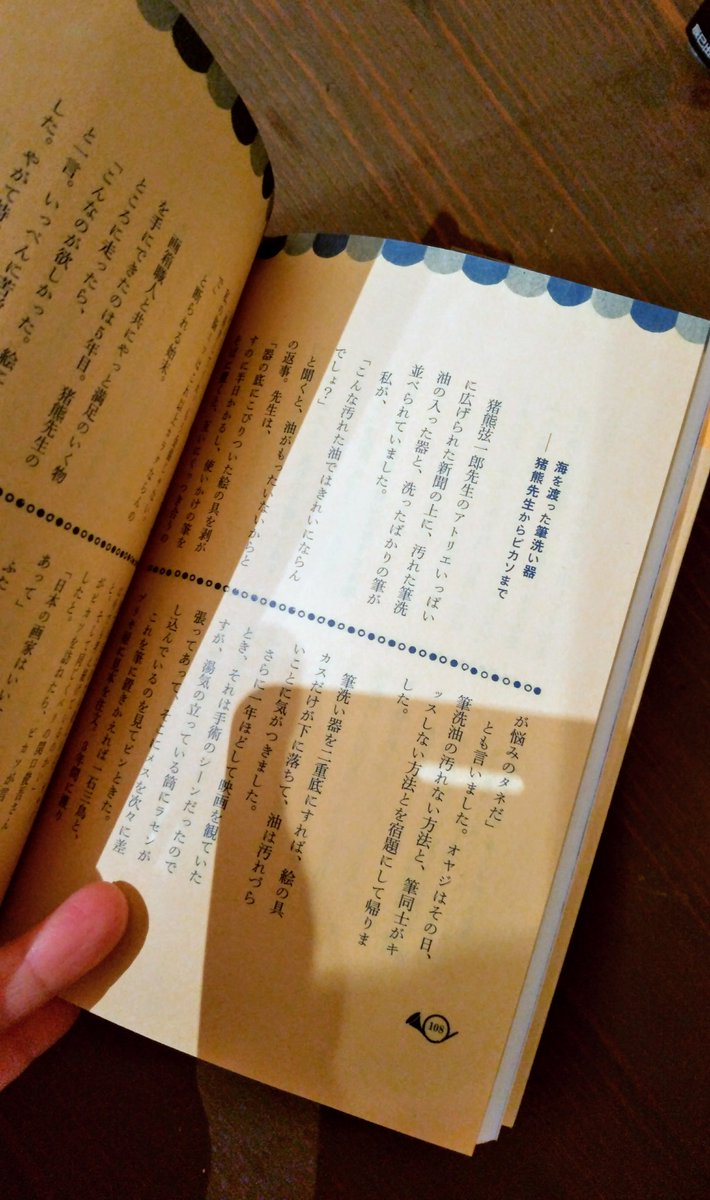 海を渡った筆洗い器
――猪熊先生からピカソまで
猪熊弦一郎先生のアトリエいっぱい
に広げられた新聞の上に、汚れた筆洗
油の入った器と、洗ったばかりの筆が
並べられていました。
私が、
「こんな汚れた油ではきれいにならん
でしょ?」
と聞くと、油がもったいないからと
の返事。先生は、
「器の底にこびりついた絵の具を剥が
すのに半日かかるし、使いかけの筆を
が悩みのタネだ」
とも言いました。オヤジはその日、
筆洗油の汚れない方法と、筆同士がキ
ッスしない方法とを宿題にして帰りま
した。
筆洗い器を二重底にすれば、絵の具
カスだけが下に落ちて、油は汚れづら
いことに気がつきました。
さらに一年ほどして、映画を観ていた
とき、それは手術のシーンだったので
すが、湯気の立っている筒にラセンが
張ってあって、そこにメスを次々に差
し込んでいるのを見てピンときた。
これを筆に置きかえれば一石三鳥と、
108
と断られる始末。
画箱職人と共にやっと満足のいく物
を手にできたのは5年目。猪熊先生の
ところに走ったら、
「こんなのが欲しかった。
と一言。いっぺんに
した。やがて
「日本の画家はいい
あって」
ふた